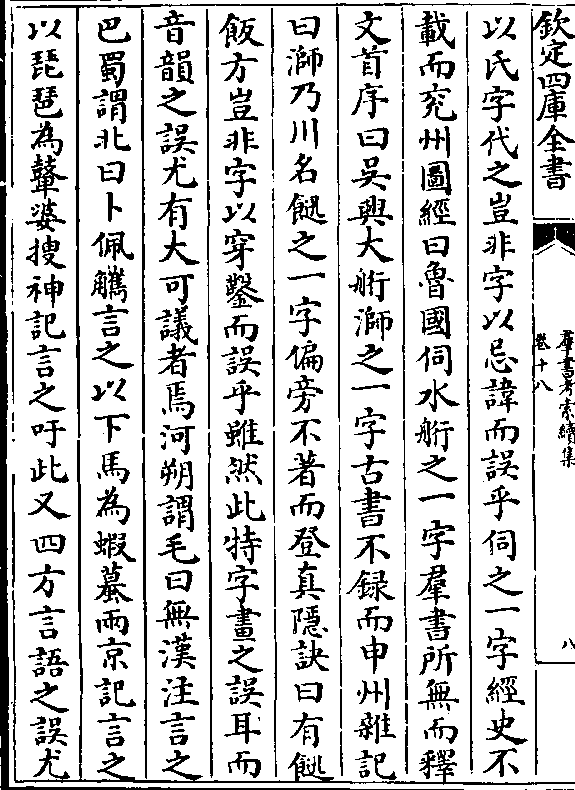 欽定四庫全書
羣書考索續集
卷十八
八
以氏字代之豈非字以忌諱而誤乎伺之一字經史不
載而兖州圖經曰魯國伺水䑪之一字羣書所無而釋
文首序曰吳興大䑪㵗之一字古書不録而申州雜記
曰㵗乃川名䭔之一字偏旁不著而登真隱訣曰有䭔
飯方豈非字以穿鑿而誤乎雖然此特字畫之誤耳而
音韻之誤尤有大可議者焉河朔謂毛曰無漢注言之
巴蜀謂北曰卜佩觿言之以下馬為蝦蟇兩京記言之
以琵琶為鼙婆搜神記言之吁此又四方言語之誤尤